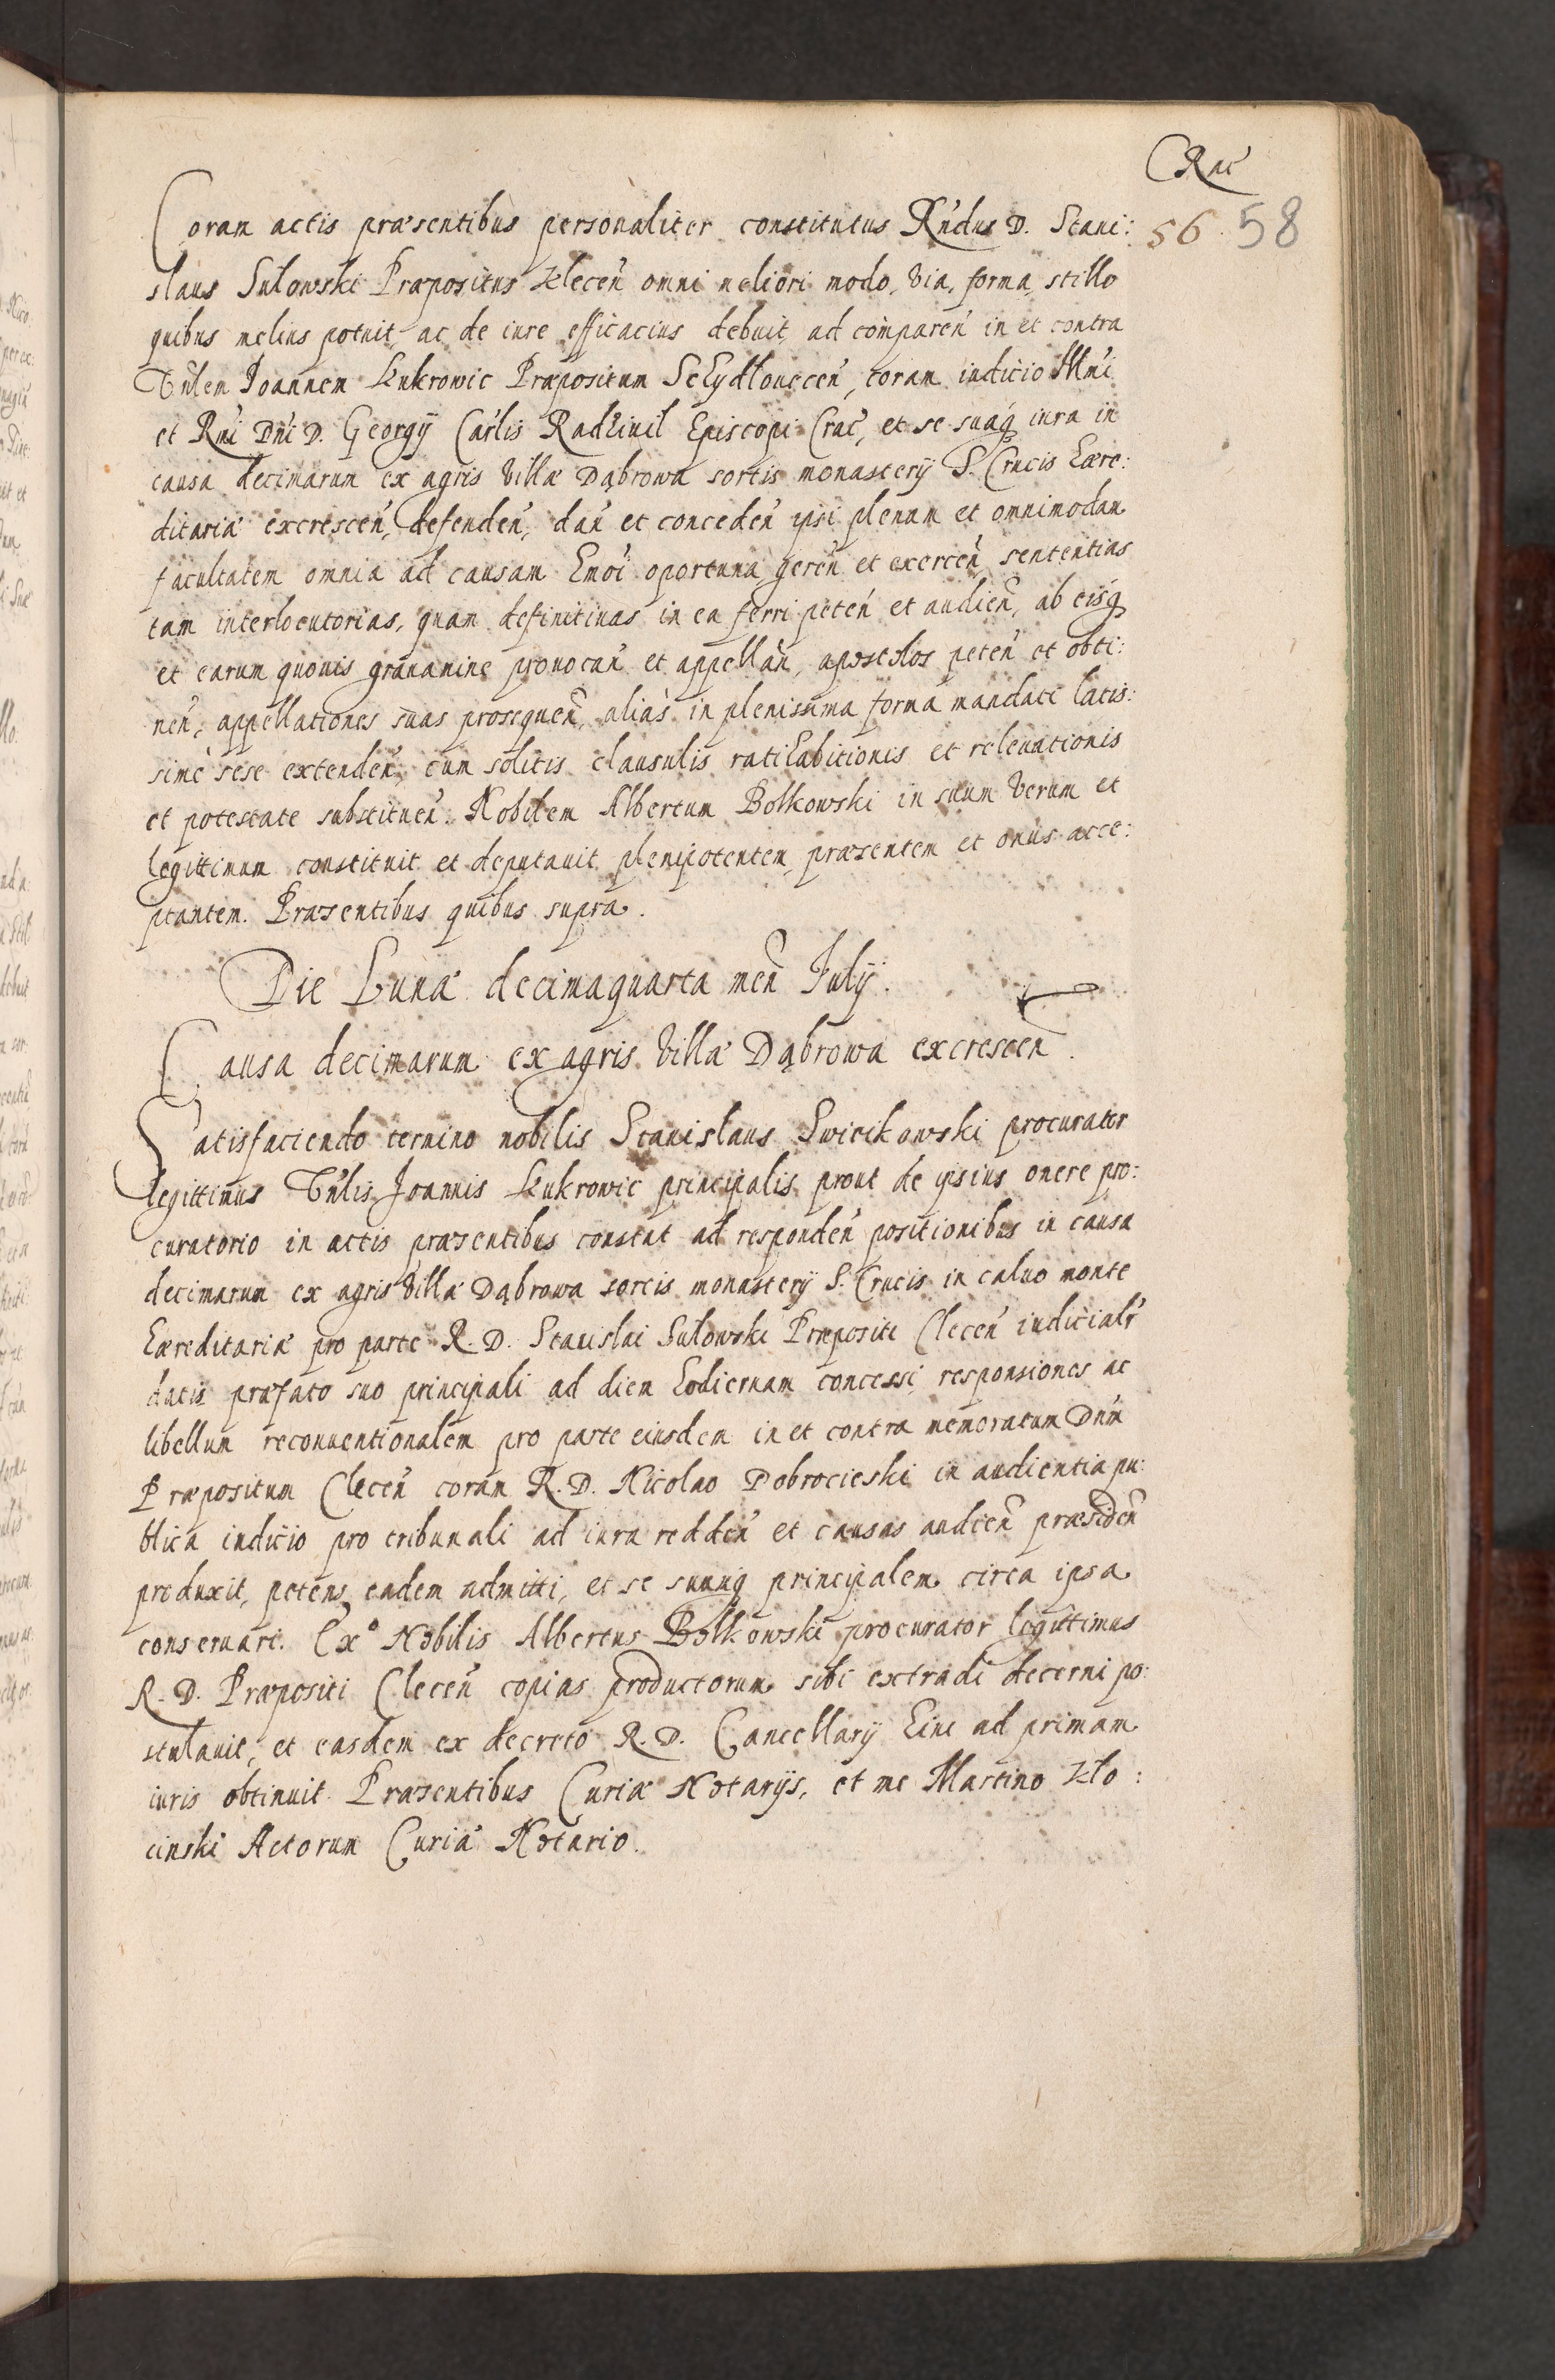 CRac̃
56. 58
Coram actis præsentibus personaliter constitutus Rńdus D. Stani:
slaus Sułowski Præpositus Klecen̄ omni meliori modo, via, forma, stillo
quibus melius potuit, ac de iure efficacius debuit, ad comparen̄ in et contra
Vńlem Joannem Kukrowic Præpositum Schydłouecen̄, coram iudicio Illm̃i
et Rm̃i Dn̄i D. Georgij Car̃lis Radziuil Episcopi Crac̃, et se suaq̃ iura in
causa decimarum ex agris villæ Dąbrowa sortis monasterij S. Crucis hære:
ditariæ excrescen̄, defenden̄, dan̄ et conceden̄ ipsi plenam et omnimodam
facultatem omnia ad causam hm̃oi oportuna geren̄ et exercen̄ sententias
tam interlocutorias, quam definitiuas in ea ferri peten̄ et audien̄, ab eisq̃
et earum quouis grauamine prouocan̄ et appellan̄, apostolos peten̄ et obti:
nen̄, appellationes suas prosequen̄, aliàs in plenissima forma mandati latis:
simè sese extenden̄, cum solitis clausulis ratihabitionis et releuationis
et potestate substituen̄. Nobilem Albertum Bolkowski in suum verum et
legittimum constituit et deputauit plenipotentem, præsentem et onus acce:
ptantem. Præsentibus quibus supra.
Die Lunæ decimaquarta men̄ Julij.
Causa decimarum ex agris villæ Dąbrowa excrescen̄.
Satisfaciendo termino nobilis Stanislaus Swiecikowski procurator
legittimus Vńlis Joannis Kukrowic principalis prout de ipsius onere pro:
curatorio in actis præsentibus constat ad responden̄ positionibus in causa
decimarum ex agris villæ Dąbrowa sortis monasterij S. Crucis in caluo monte
hæreditariæ pro parte R. D. Stanislai Sułowski Præpositi Clecen̄ iudicialr̃
datis præfato suo principali ad diem hodiernam concessi responsiones ac
libellum reconuentionalem pro parte eiusdem in et contra memoratum Dn̄m
Præpositum Clecen̄ coram R. D. Nicolao Dobrocieski in audientia pu:
blica iudicio pro tribunali ad iura redden̄ et causas audien̄ præsiden̄
produxit, petens eadem admitti, et se suumq̃ principalem circa ipsa
conseruari. Exº Nobilis Albertus Bolkowski procurator legittimus
R. D. Præpositi Clecen̄ copias productorum sibi extradi decerni po:
stulauit, et easdem ex decreto R. D. Cancellarij hinc ad primam
iuris obtinuit. Præsentibus Curiæ Notarijs, et me Martino Kło:
cinski Actorum Curiæ Notario.